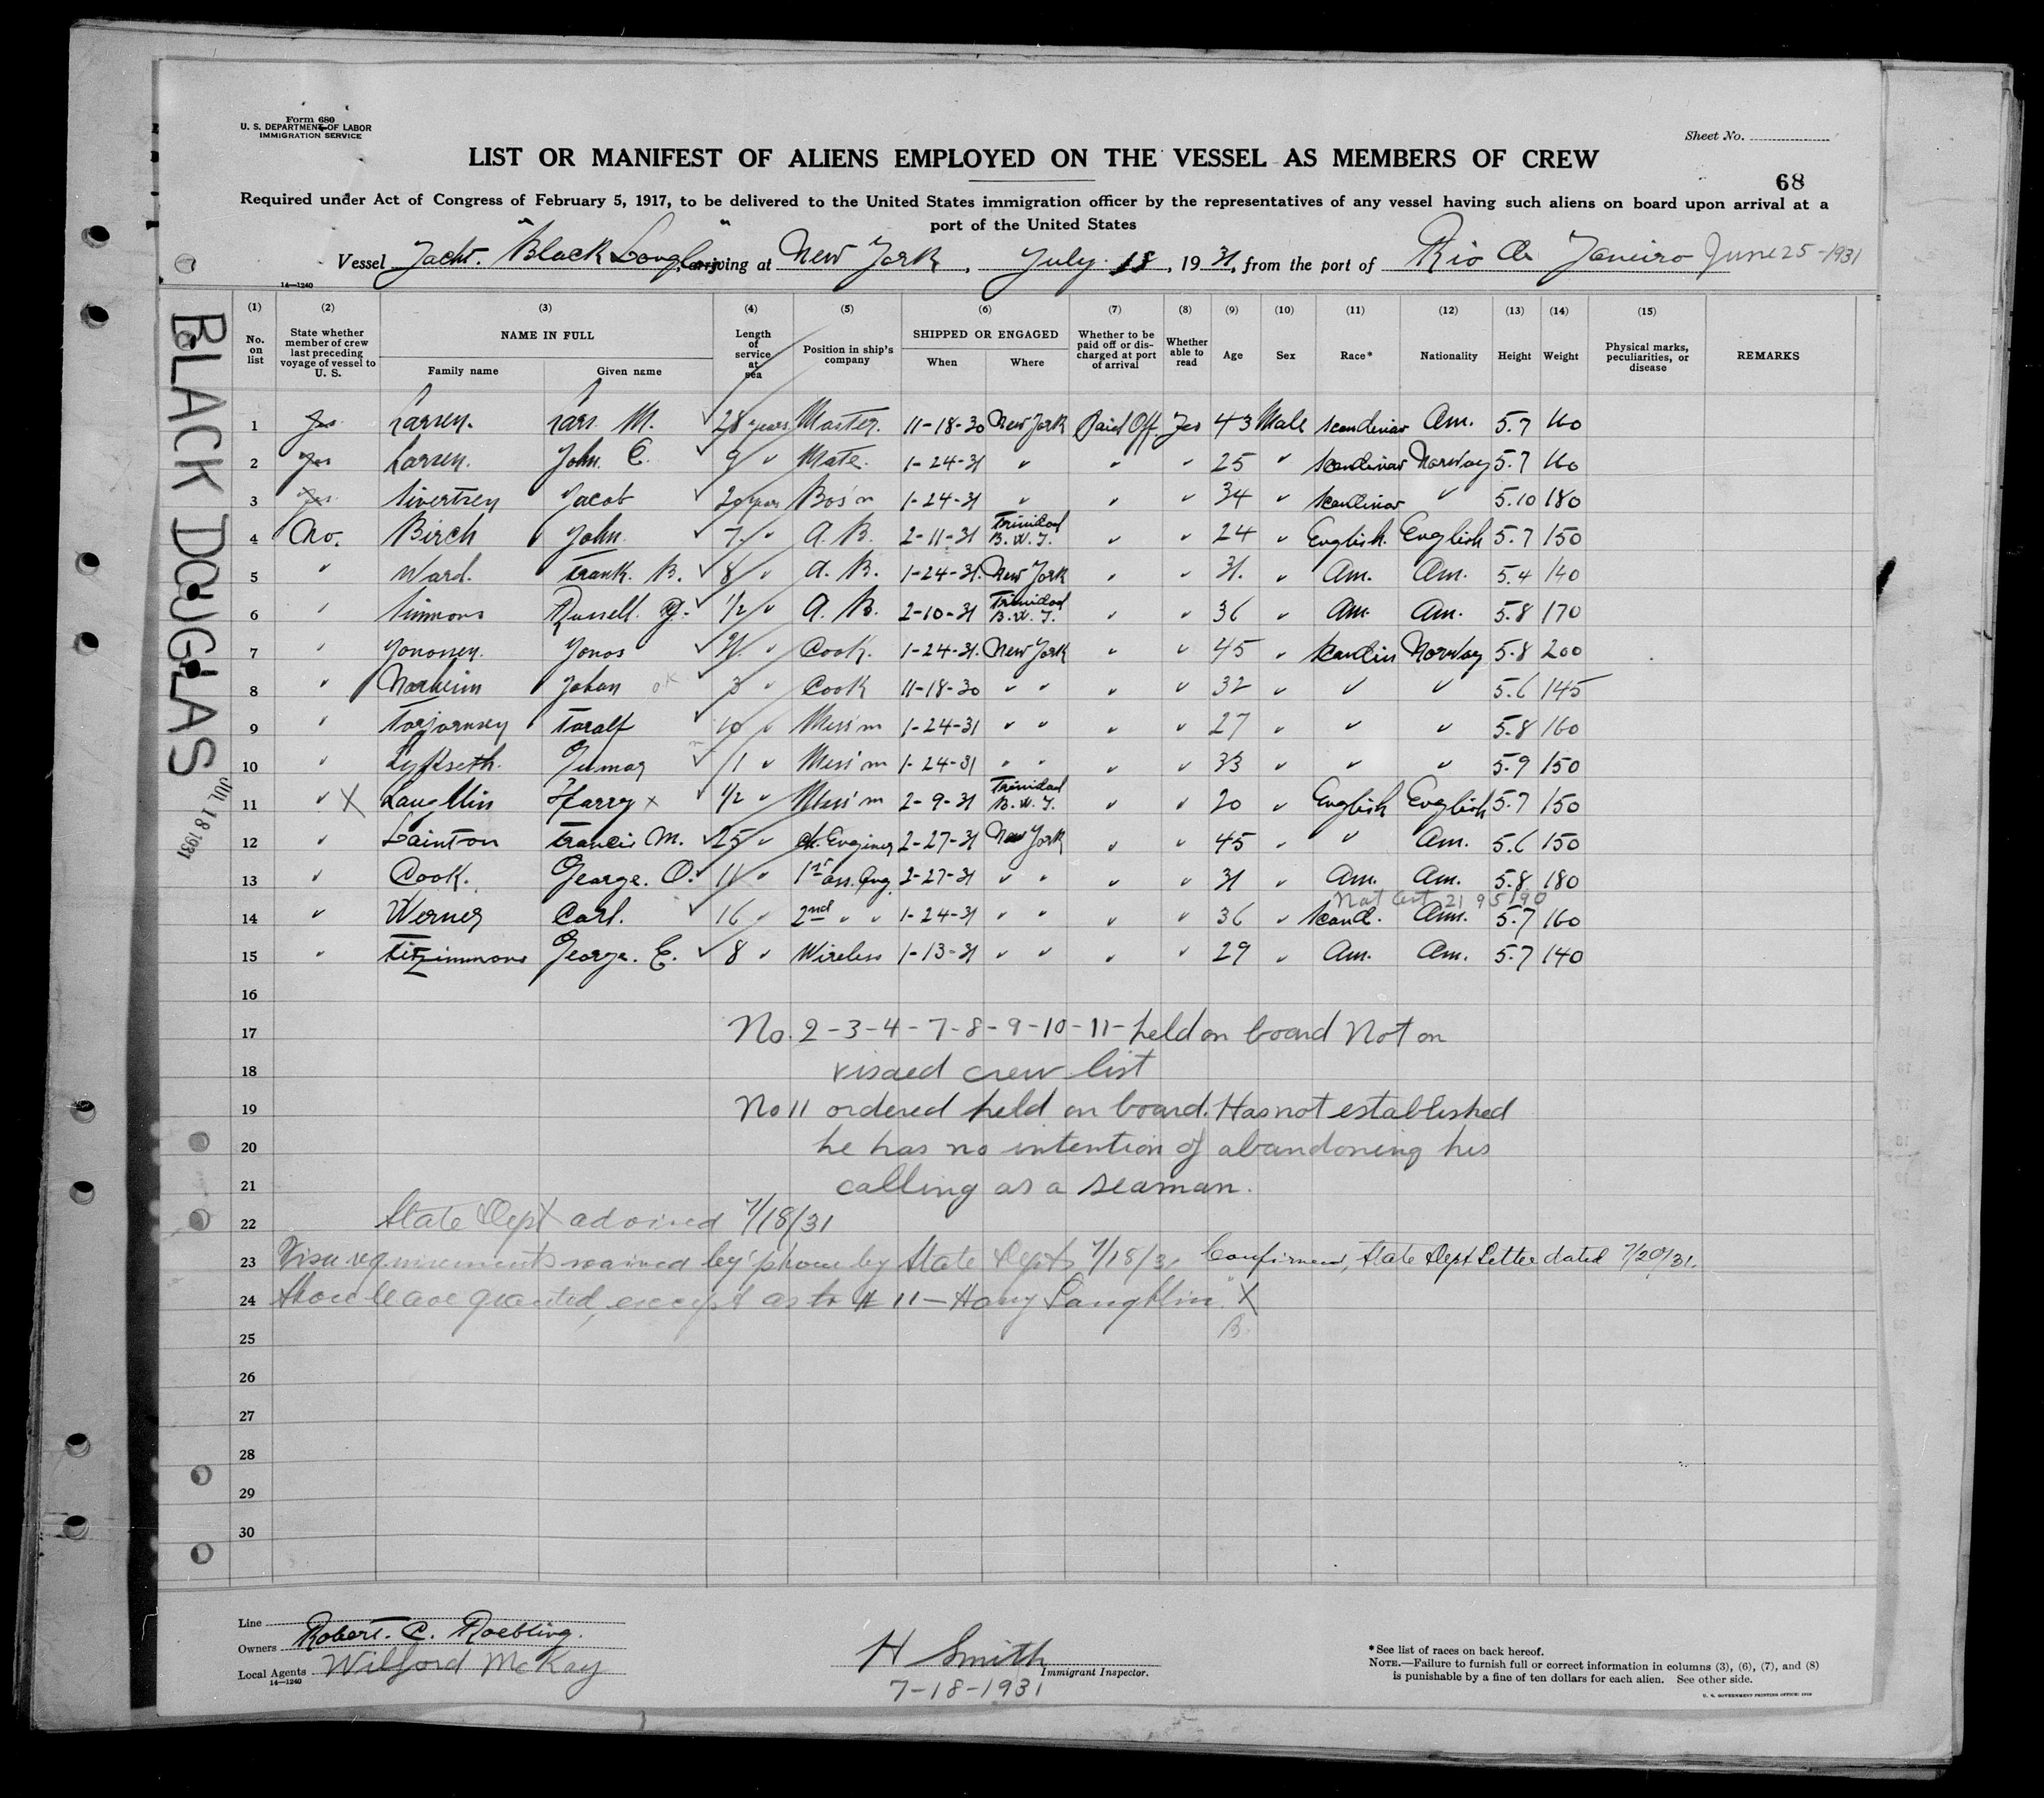 Form 680
U. S. DEPARTMENT OF LABOR
IMMIGRATION SERVICE
Sheet No.
LIST OR MANIFEST OF ALIENS EMPLOYED ON THE VESSEL AS MEMBERS OF CREW
68
Required under Act of Congress of February 5, 1917, to be delivered to the United States immigration officer by the representatives of any vessel having such aliens on board upon arrival at a
port of the United States
Vessel Yacht. "Black Douglas", arriving at New York, July 18, 1931, from the port of Rio de Janeiro June 25-1931
14—1240
(1) (2) (3) (4) (5) (6) (7) (8) (9) (10) (11) (12) (13) (14) (15)
No. on list State whether member of crew last preceding voyage of vessel to U. S. NAME IN FULL Family name Given name Length of service at sea Position in ship's company SHIPPED OR ENGAGED When Where Whether to be paid off or discharged at port of arrival Whether able to read Age Sex Race* Nationality Height Weight Physical marks, peculiarities, or disease REMARKS
1 Yes Larsen. Lars M. ✓ 28 years Master. 11-18-30 New York Paid Off Yes 43 Male Scandinav Am. 5.7 160
2 Yes Larsen. John. C. ✓ 9 ✓ Mate. 1-24-31 ✓ ✓ ✓ 25 ✓ Scandinav Norway 5.7 160
3 Yes Sivertsen Jacob ✓ 20 year Bos'n 1-24-31 ✓ ✓ ✓ 34 ✓ Scandinav ✓ 5.10 180
4 No. Birch John. ✓ 7 ✓ A. B. 2-11-31 Trinidad B. W. I. ✓ ✓ 24 ✓ English. English 5.7 150
5 ✓ Ward. Frank. B. ✓ 8 ✓ A. B. 1-24-31. New York ✓ ✓ 31. ✓ Am. Am. 5.4 140
6 ✓ Simmons Russell. ✓ 1/2 ✓ A. B. 2-10-31 Trinidad B. W. I. ✓ ✓ 36 ✓ Am. Am. 5.8 170
7 ✓ Jonassen. Jonas ✓ ✓ Cook. 1-24-31. New York ✓ ✓ 45 ✓ Scandin Norway 5.8 200
8 ✓ Norheim Johan OK ✓ 3 ✓ Cook 11-18-30 ✓ ✓ ✓ ✓ 32 ✓ ✓ ✓ 5.6 145
9 ✓ Torjornsen Toralf ✓ 10 ✓ Mess'm 1-24-31 ✓ ✓ ✓ ✓ 27 ✓ ✓ ✓ 5.8 160
10 ✓ Lyftseth. Gunnar ✓ 1 ✓ Mess'm 1-24-31 ✓ ✓ ✓ ✓ 33 ✓ ✓ ✓ 5.9 150
11 ✓ X Laughlin Harry x ✓ 1/2 ✓ Mess'm 2-9-31 Trinidad B. W. I. ✓ ✓ 20 ✓ English English 5.7 150
12 ✓ Lainton Francis M. ✓ 25 ✓ Ch. Engineer 2-27-31 New York ✓ ✓ 45 ✓ ✓ Am. 5.6 150
13 ✓ Cook. George. O. ✓ 11 ✓ 1st ass. Eng. 2-27-31 ✓ ✓ ✓ ✓ 31 ✓ Am. Am. 5.8 180
Nat Cert 2195190
14 ✓ Werner Carl. ✓ 16 ✓ 2nd ✓ ✓ 1-24-31 ✓ ✓ ✓ ✓ 36 ✓ Scand. Am. 5.7 160
15 ✓ Fitzimmons George. E. ✓ 8 ✓ Wireless 1-13-31 ✓ ✓ ✓ ✓ 29 ✓ Am. Am. 5.7 140
16
17 No. 2-3-4-7-8-9-10-11- held on board Not on
18 visaed crew list
19 No 11 ordered held on board. Has not established
20 he has no intention of abandoning his
21 calling as a seaman.
22 State Dept advised 7/18/31
23 Visa requirements waived by phone by State Dept 7/18/31 Confirmed, State Dept Letter dated 7/20/31.
24 Shore leave granted, except as to # 11 — Harry Laughlin X
25 B.
26
27
28
29
30
BLACK DOUGLAS
JUL 18 1931
Line
Owners Robert. C. Roebling.
Local Agents Wilford McKay
14—1240
H Smith
Immigrant Inspector.
7-18-1931
*See list of races on back hereof.
NOTE.—Failure to furnish full or correct information in columns (3), (6), (7), and (8)
is punishable by a fine of ten dollars for each alien. See other side.
U. S. GOVERNMENT PRINTING OFFICE: 1929